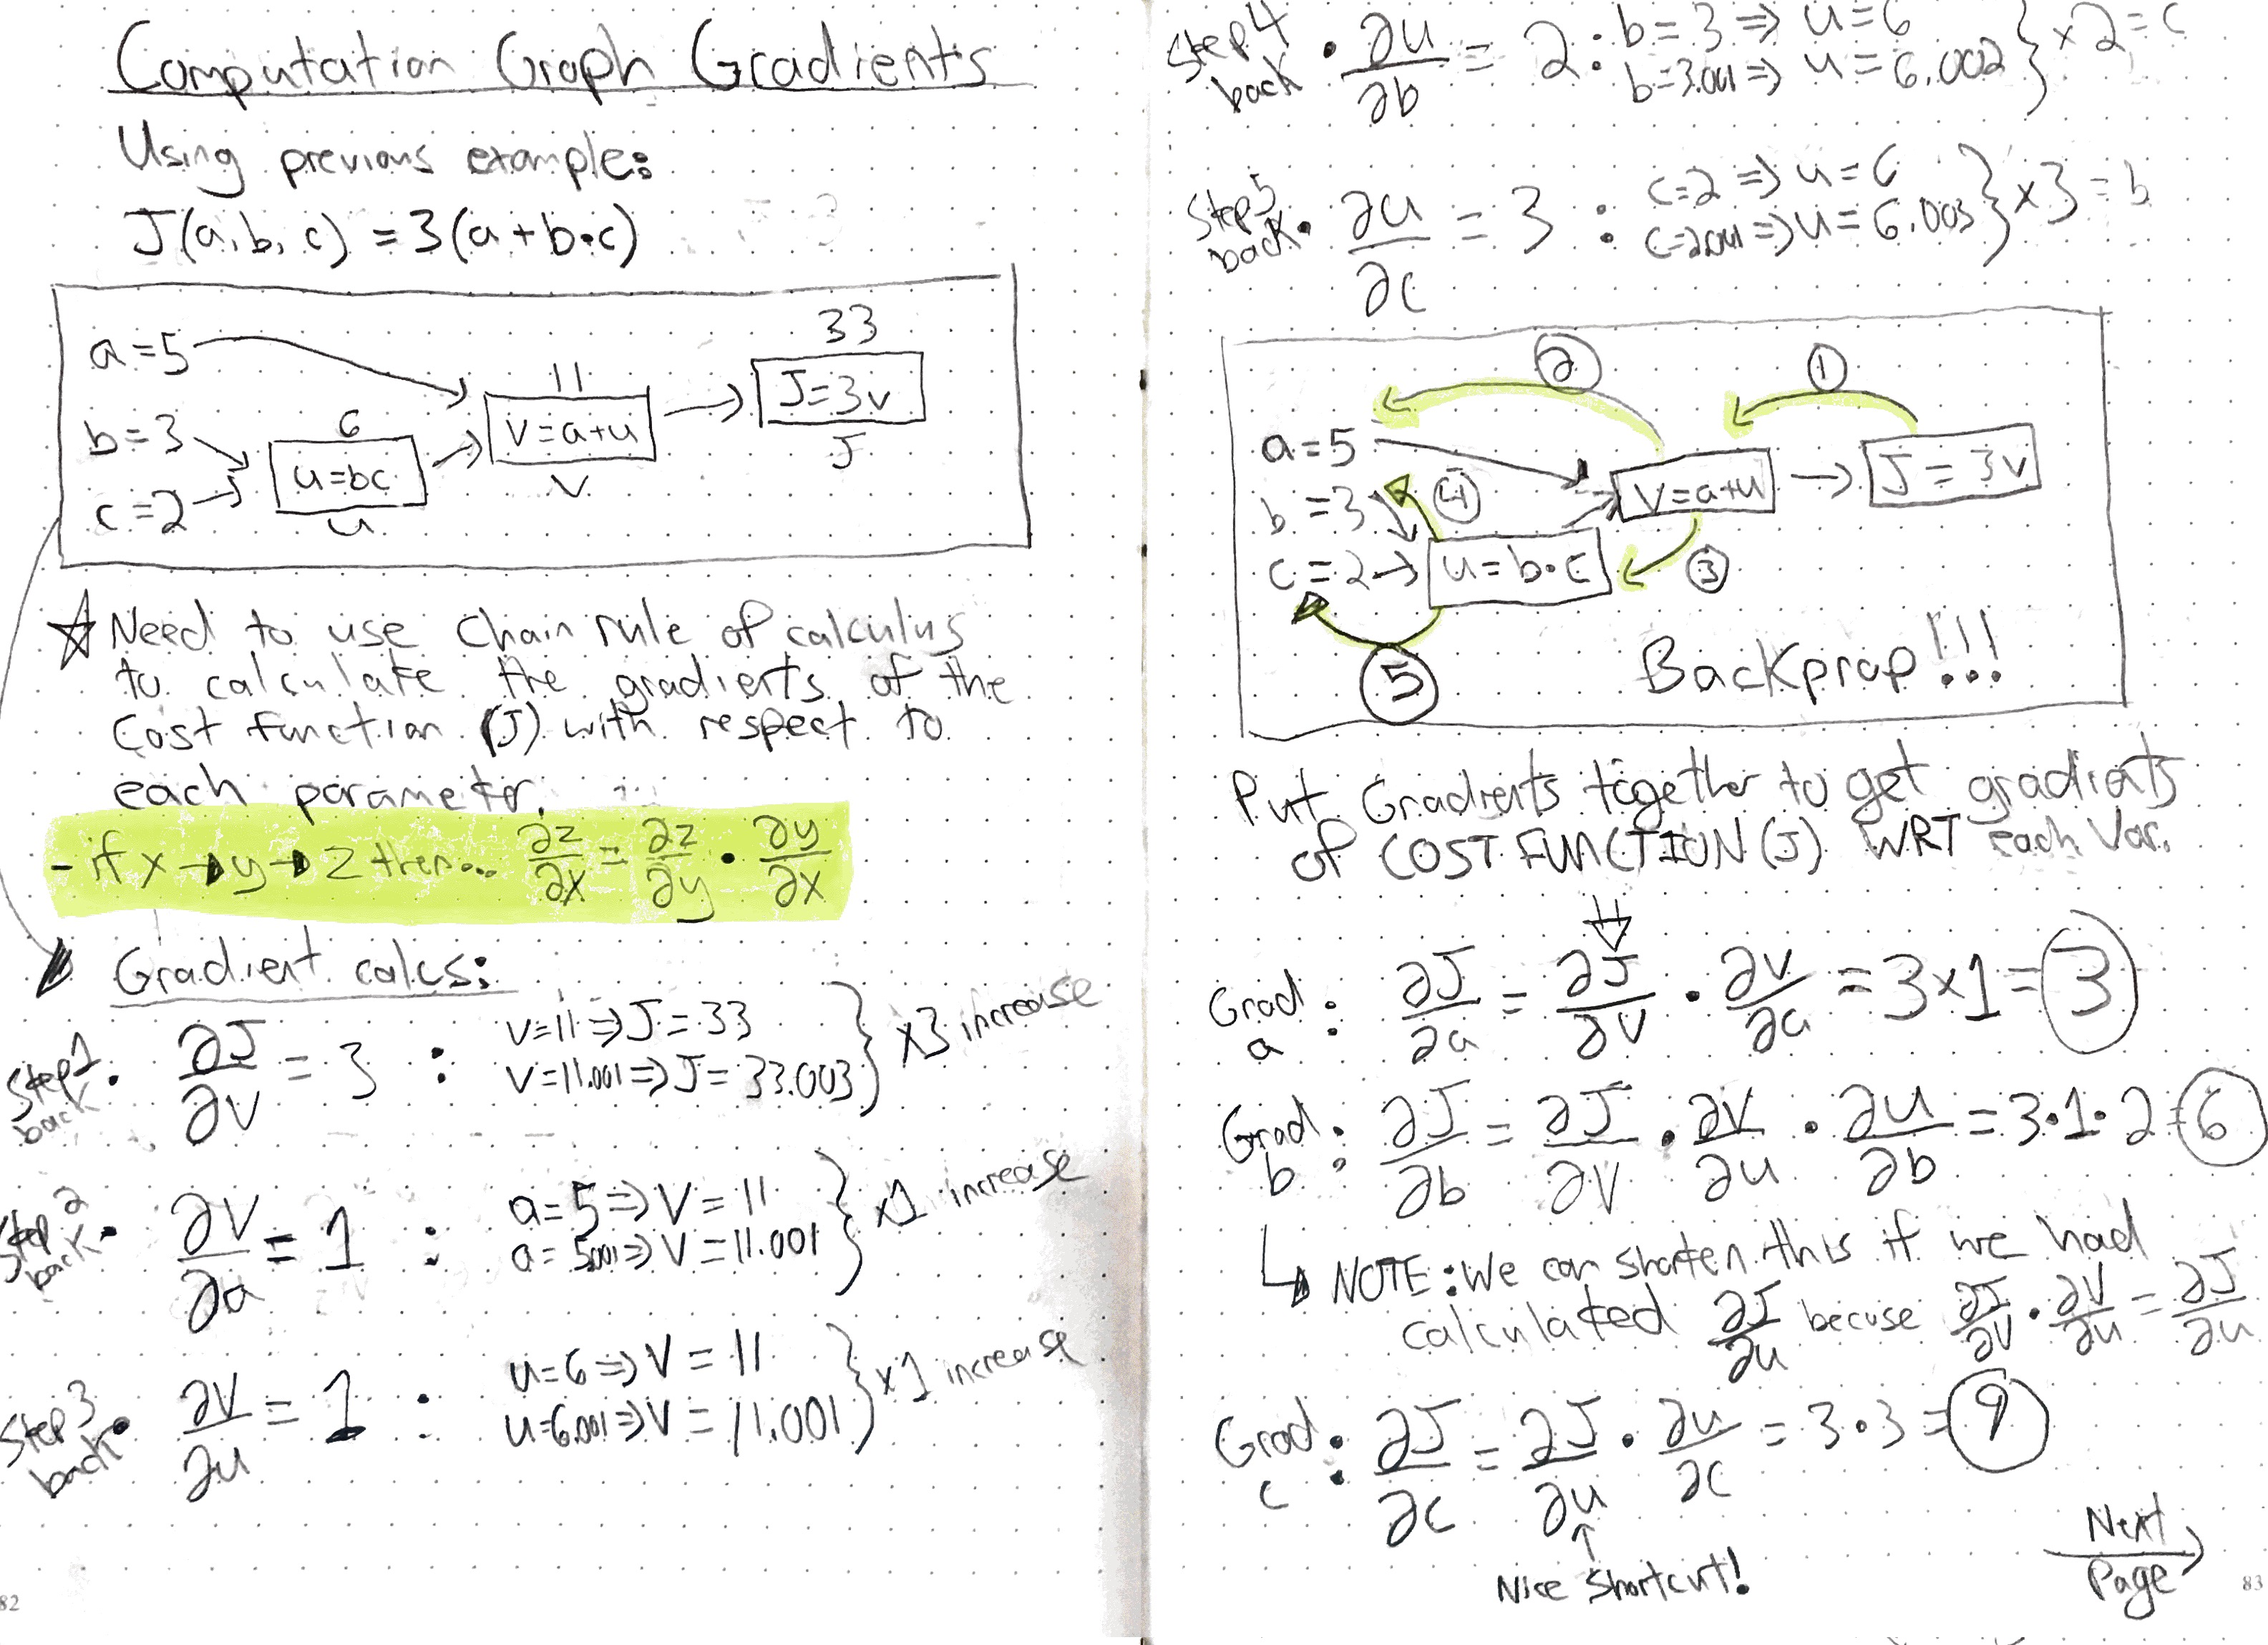 Computation Graph Gradients
Using previous example:
J(a,b,c) = 3(a+b•c)
33
a=5
11
J=3v
b=3
6
V=a+u
J
u=bc
V
c=2
u
☆ Need to use Chain rule of calculus
to calculate the gradients of the
Cost function (J) with respect to
each parameter.
- if x → y → z then... ∂z/∂x = ∂z/∂y • ∂y/∂x
Gradient calcs:
Step 1 back • ∂J/∂V = 3 : V=11 => J=33
V=11.001 => J=33.003 } x3 increase
Step 2 back • ∂V/∂a = 1 : a=5 => V=11
a=5.001 => V=11.001 } x1 increase
Step 3 back • ∂V/∂u = 1 : u=6 => V=11
u=6.001 => V=11.001 } x1 increase
82
Step 4 back • ∂u/∂b = 2 : b=3 => u=6
b=3.001 => u=6.002 } x2 = c
Step 5 back • ∂u/∂c = 3 : c=2 => u=6
c=2.001 => u=6.003 } x3 = b
② ①
a=5
④
V=a+u → J=3v
b=3
c=2 → u=b•c
③
⑤
Backprop!!!
Put Gradients together to get gradients
of COST FUNCTION (J) WRT each Var.
Grad a : ∂J/∂a = ∂J/∂V • ∂V/∂a = 3x1 = 3
Grad b : ∂J/∂b = ∂J/∂V • ∂V/∂u • ∂u/∂b = 3•1•2 = 6
↳ NOTE: We can shorten this if we had
calculated ∂J/∂u becuse ∂J/∂V • ∂V/∂u = ∂J/∂u
Grad c : ∂J/∂c = ∂J/∂u • ∂u/∂c = 3•3 = 9
↑
Nice Shortcut!
Next
Page
83